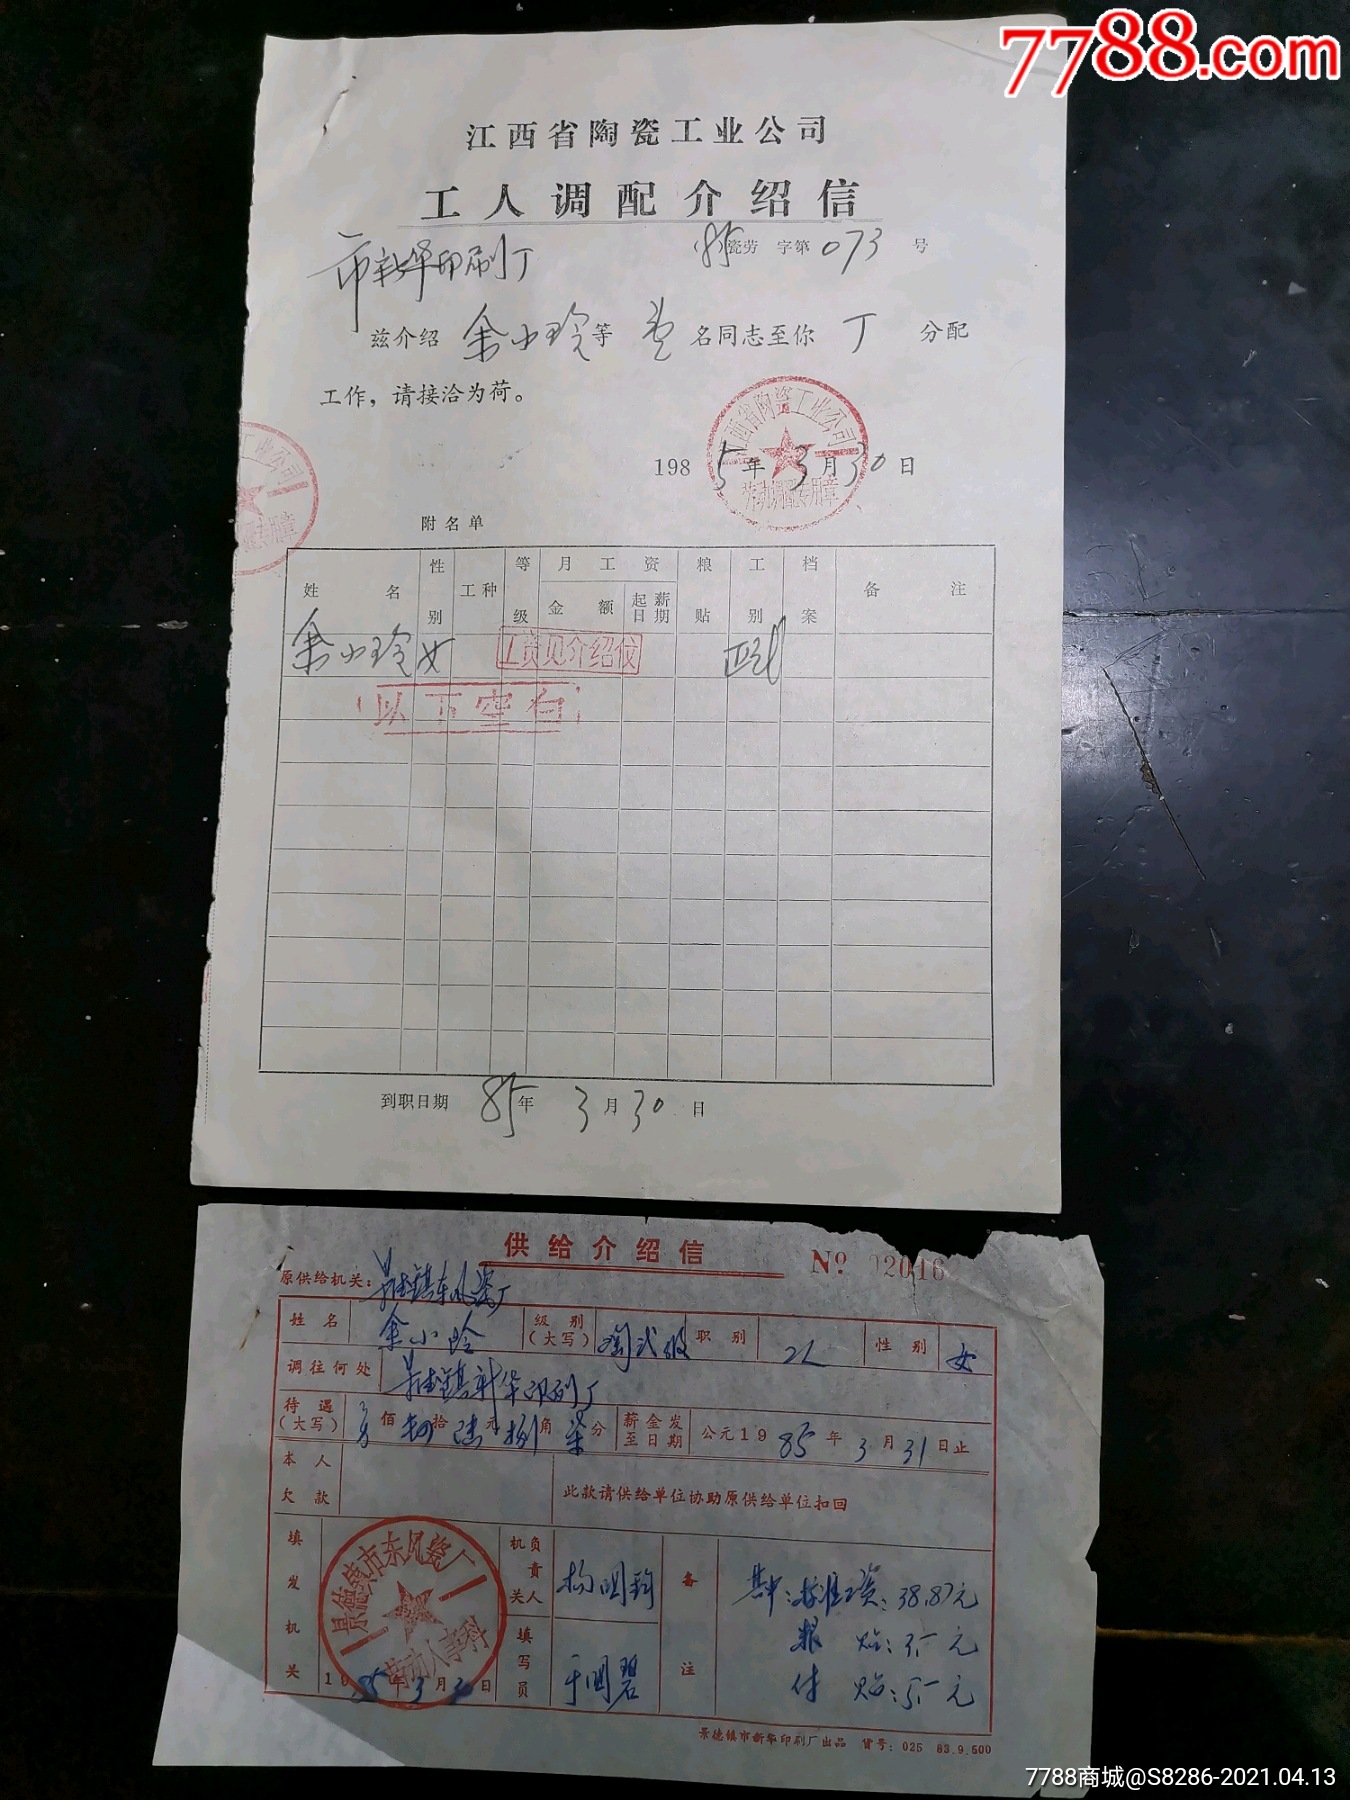 7788.com
江西省陶瓷工业公司
工人调配介绍信
市新华印刷厂
(85)瓷劳 字第 073 号
兹介绍 余小玲 等 壹 名同志至你 厂 分配
工作，请接洽为荷。
江西省陶瓷工业公司
劳动调配专用章
1985年3月30日
工业公司
用章
附名单
姓名 性别 工种 等级 月工资 金额 起薪日期 粮贴 工别 档案 备注
余小玲 女 工资见介绍信
以下空白
到职日期 85年3月30日
供给介绍信
№ 02016
原供给机关：景德镇东风瓷厂
姓名 余小玲 级别（大写） 陶弍级 职别 工人 性别 女
调往何处 景德镇新华印刷厂
待遇（大写） 佰 拾 陆元捌角柒分 薪金发至日期 公元1985年3月31日止
本人欠款 此款请供给单位协助原供给单位扣回
填发机关 机关负责人 备注
景德镇市东风瓷厂
劳动人事科
1985年3月30日
填写员
其中：标准工资：38.87元
粮 贴：
付 贴：
景德镇市新华印刷厂出品 货号：025 83.9.500
7788商城@S8286-2021.04.13